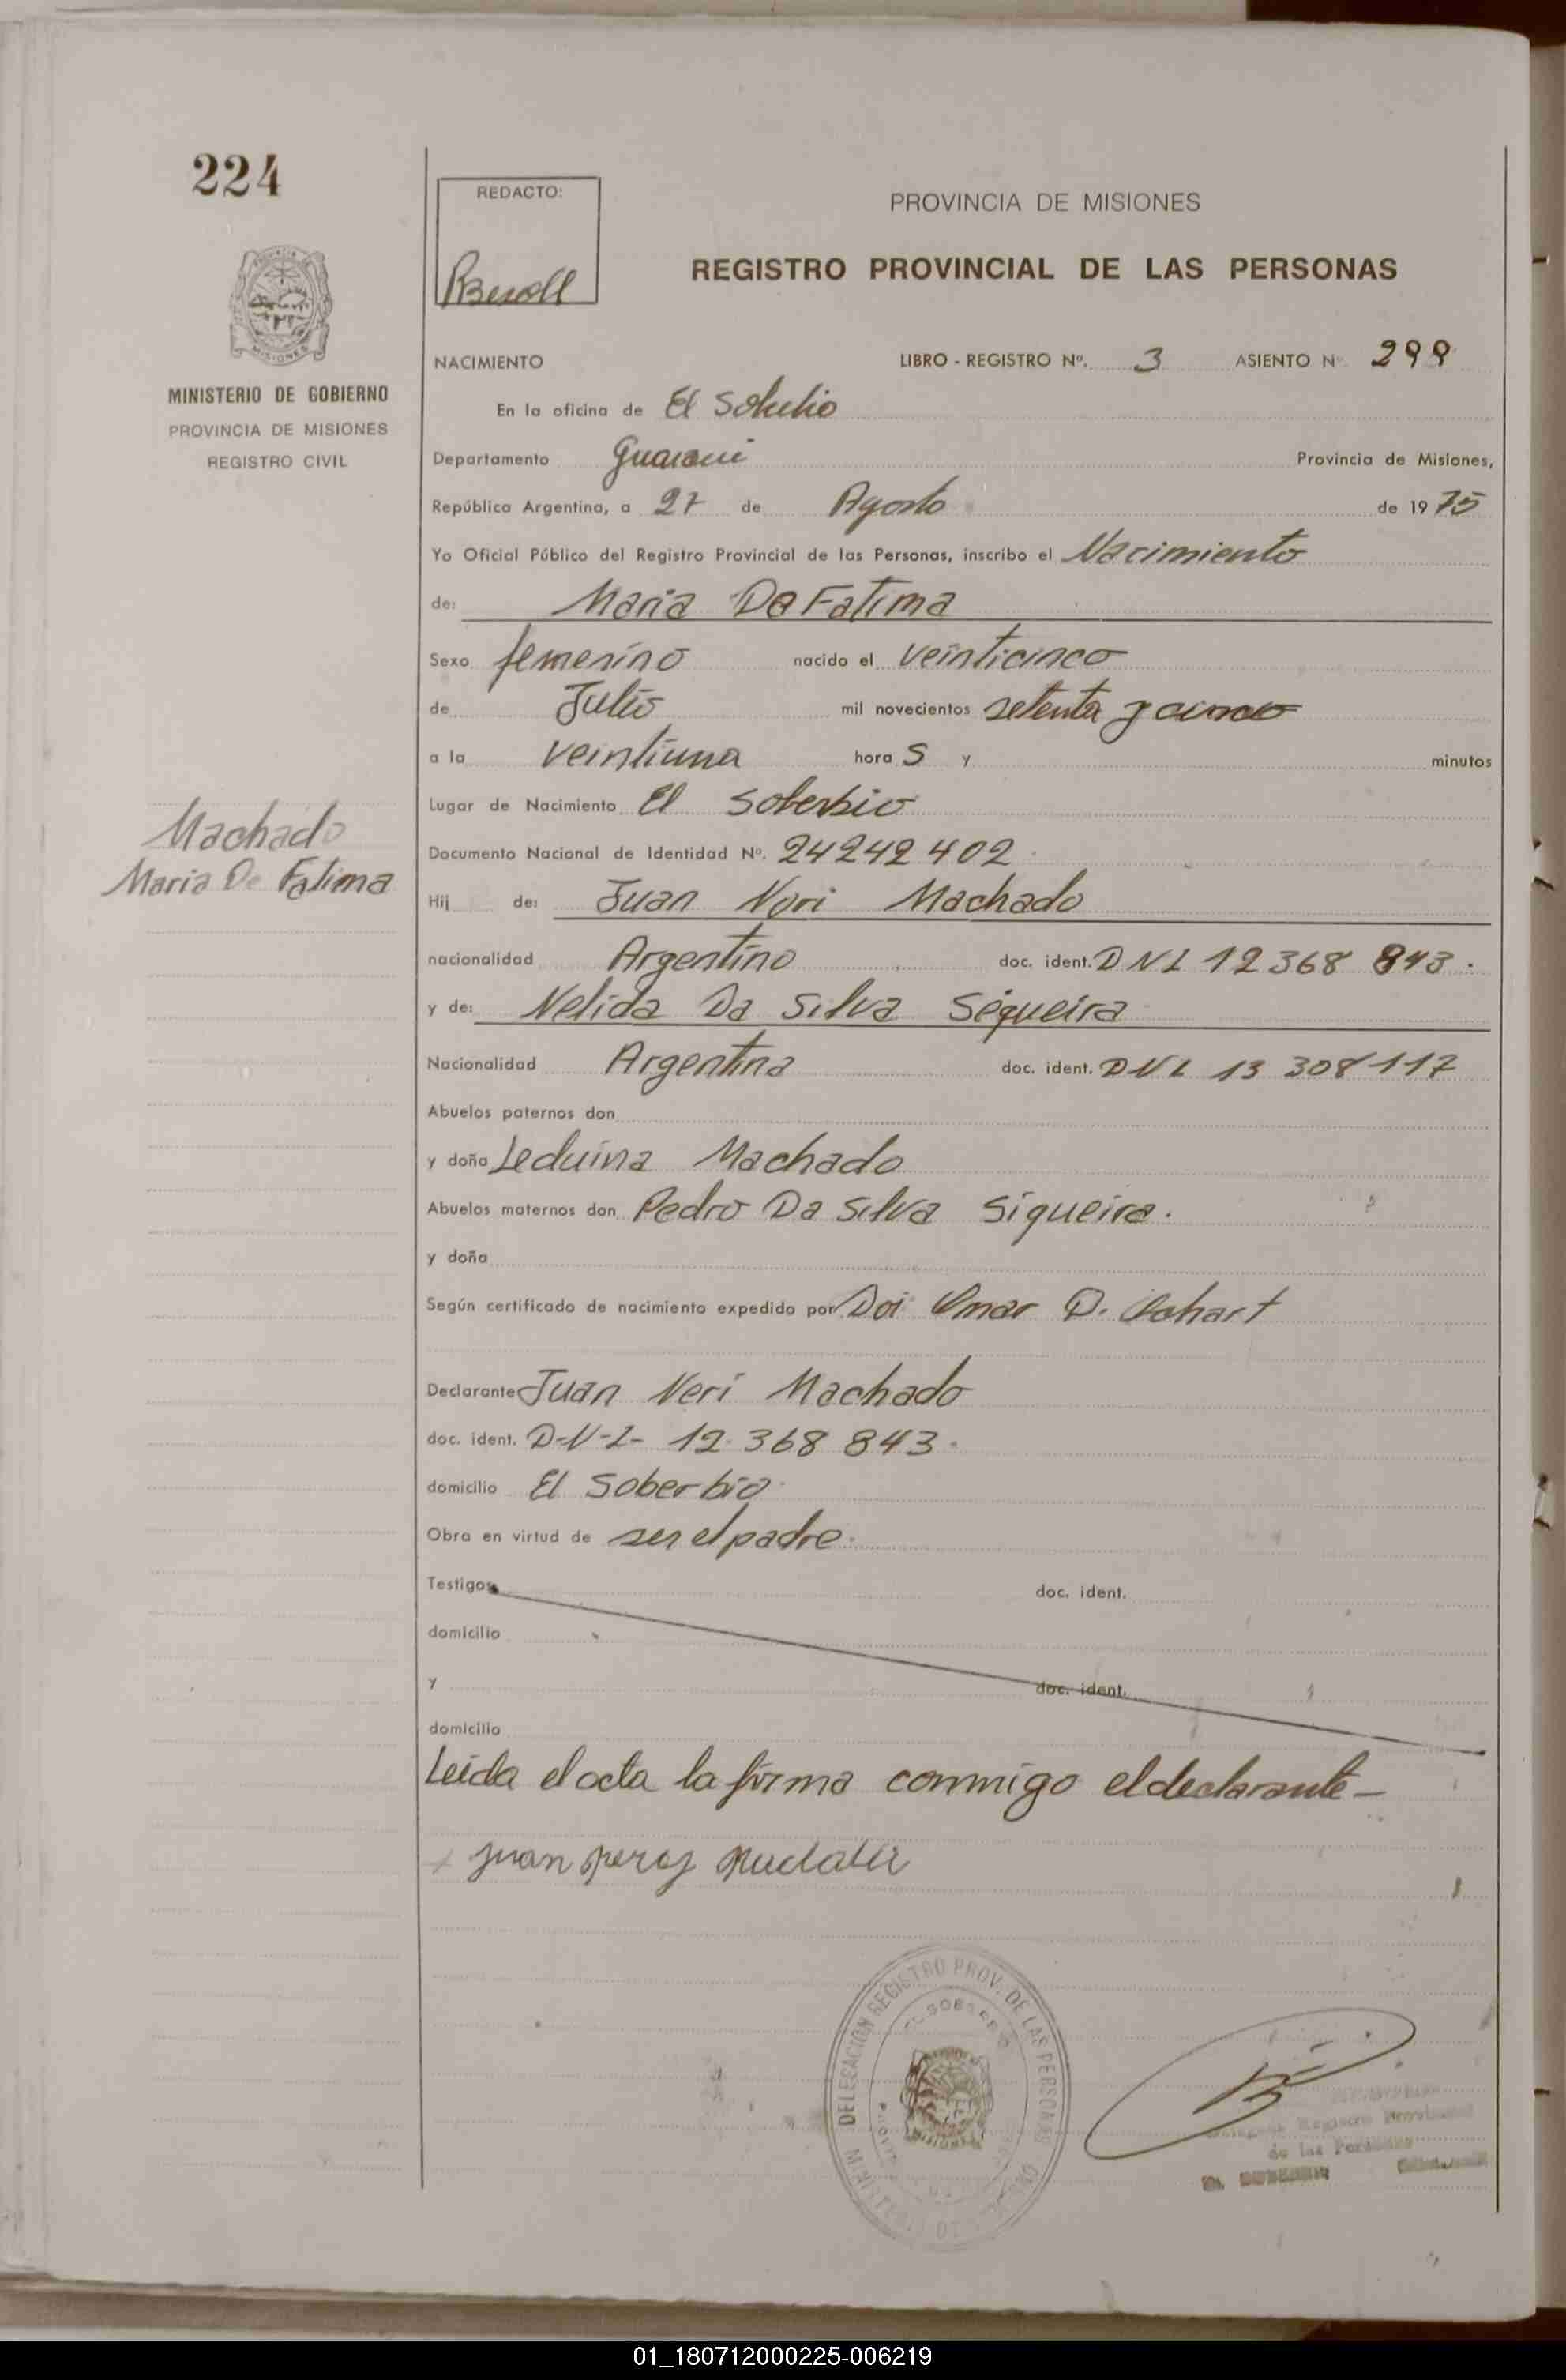 224
REDACTO:
PROVINCIA DE MISIONES
REGISTRO PROVINCIAL DE LAS PERSONAS
MISIONES
MINISTERIO DE GOBIERNO
PROVINCIA DE MISIONES
REGISTRO CIVIL
NACIMIENTO LIBRO - REGISTRO Nº. 3 ASIENTO Nº 299
En la oficina de El Soberbio
Departamento Guarani Provincia de Misiones,
República Argentina, a 27 de Agosto de 1975
Yo Oficial Público del Registro Provincial de las Personas, inscribo el Nacimiento
de: Maria De Fatima
Sexo femenino nacido el veinticinco
de Julio mil novecientos setenta y cinco
a la veintiuna hora s y minutos
Lugar de Nacimiento El Soberbio
Machado
Maria De Fatima
Documento Nacional de Identidad Nº. 24242402
Hij de: Juan Neri Machado
nacionalidad Argentino doc. ident. DNI 12368 843.
y de: Nelida Da Silva Sequeira
Nacionalidad Argentina doc. ident. DNI 13 308 117
Abuelos paternos don
y doña Leduina Machado
Abuelos maternos don Pedro Da Silva Siqueira.
y doña
Según certificado de nacimiento expedido por Omar D.
Declarante Juan Neri Machado
doc. ident. D-N-I- 12.368 843.
domicilio El Soberbio
Obra en virtud de ser el padre.
Testigos doc. ident.
domicilio
y doc. ident.
domicilio
Leida el acta la firma conmigo el declarante-
juan
DELEGACION REGISTRO PROV. DE LAS PERSONAS
EL SOBERBIO
MISIONES
Registro Provincial
de las Personas
EL SOBERBIO
01_180712000225-006219